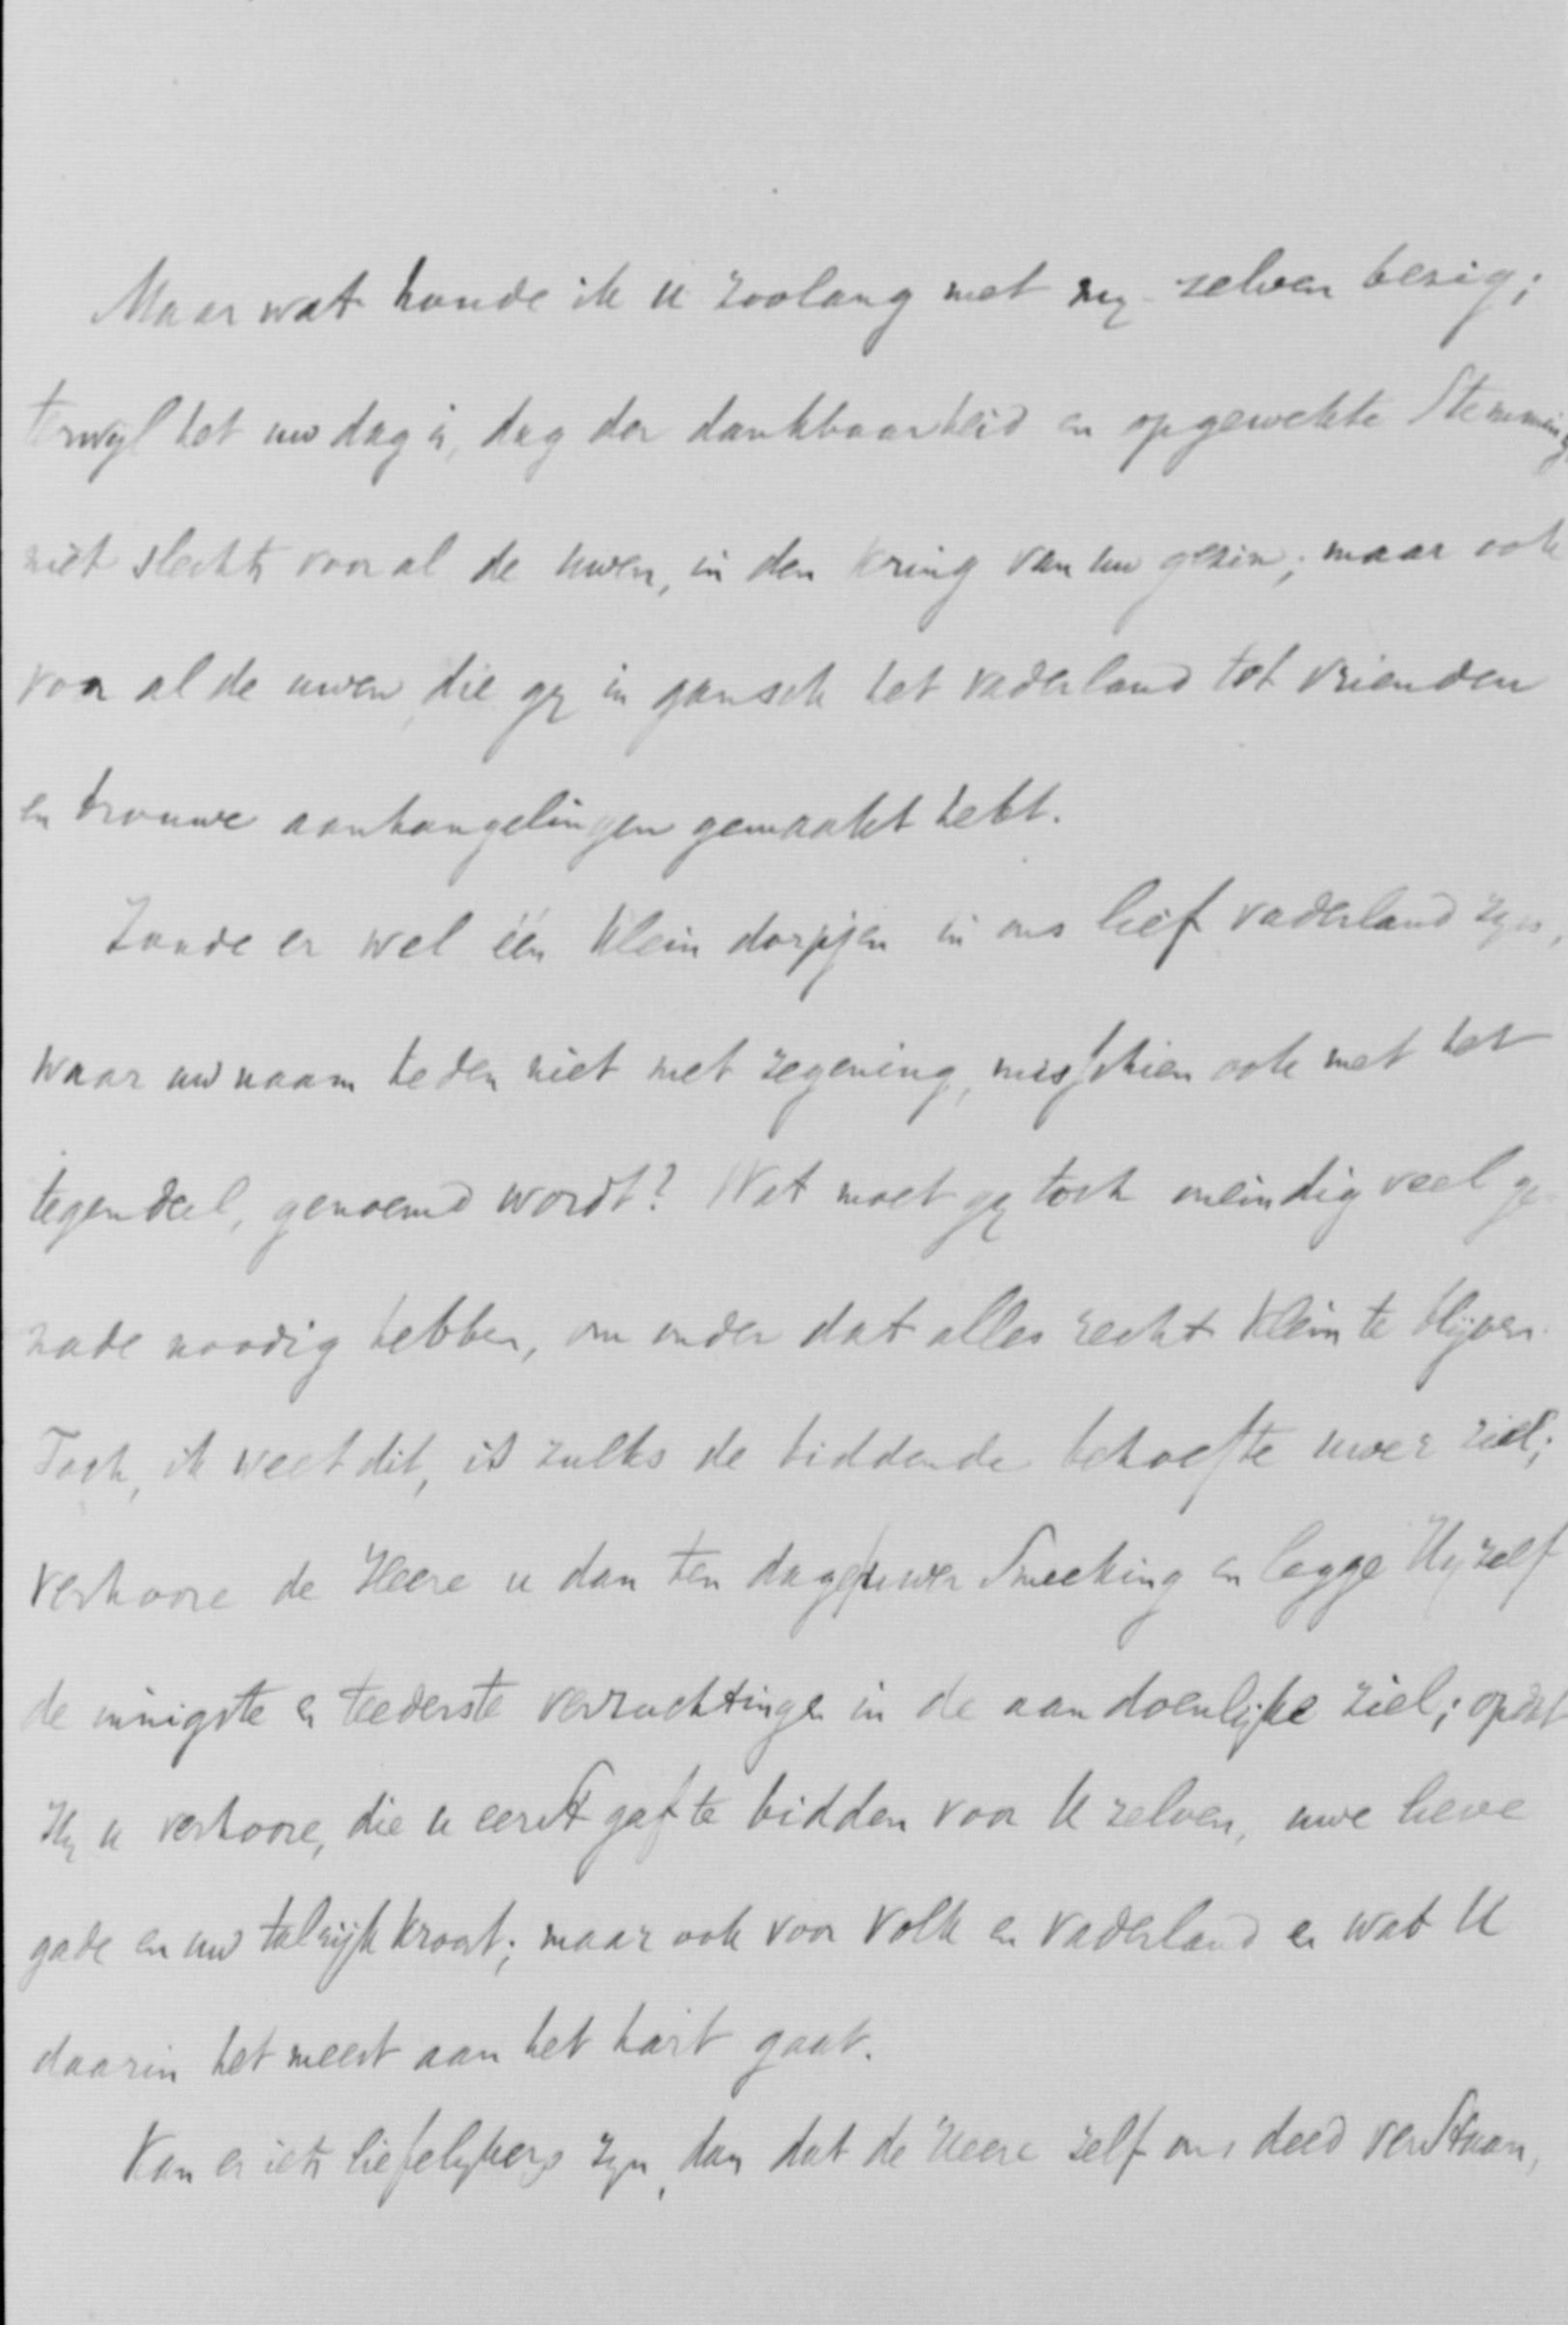 Maar wat houde ik u zoolang met my-zelven bezig;
terwyl het uw dag is, dag der dankbaarheid en opgewekte Stemming
niet slechts voor al de uwen, in den kring van uw gezin; maar ook
voor al de uwen, die gy in gansch het vaderland tot vrienden
en trouwe aanhangelingen gemaakt hebt.
Zoude er wel één klein dorpjen in ons lief vaderland zyn,
waar uw naam heden niet met zegening, misschien ook met het
tegendeel, genoemd wordt? Wat moet gy toch oneindig veel ge
nade noodig hebben, om onder dat alles recht klein te blijven.
Toch, ik weet dit, is zulks de biddende behoefte uwer ziel;
verhoore de Heere u dan ten dage uwer Smeeking en legge Hy zelf
de innigste en teederste verzuchtingen in de aandoenlijke ziel; opdat
Hy u verhoore, die u eerst gaf te bidden voor U zelven, uwe lieve
gade en uw talrijk kroost; maar ook voor Volk en Vaderland en wat U
daarin het meest aan het hart gaat.
Kan er iets liefelykers zyn, dan dat de Heere zelf ons deed verstaan,